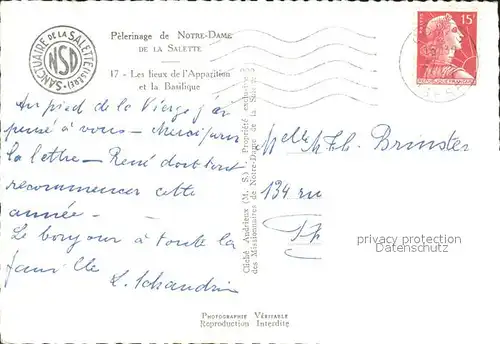 SANCTUAIRE DE LA SALETTE (ISÈRE)
NSD
Pèlerinage de NOTRE-DAME
DE LA SALETTE
17 - Les lieux de l'Apparition
et la Basilique
15F
Au pied de la Vierge j'ai
pensé à vous - Merci pour
la lettre - René doit tout
recommencer cette
année -
Le bonjour à toute la
famille
Cliché Andrieux (M. S.) - Propriété exclusive
des Missionnaires de Notre-Dame de la Salette
Melle Th. Brinster
134 ru
privacy protection
(watermark)
PHOTOGRAPHIE VÉRITABLE
Reproduction Interdite